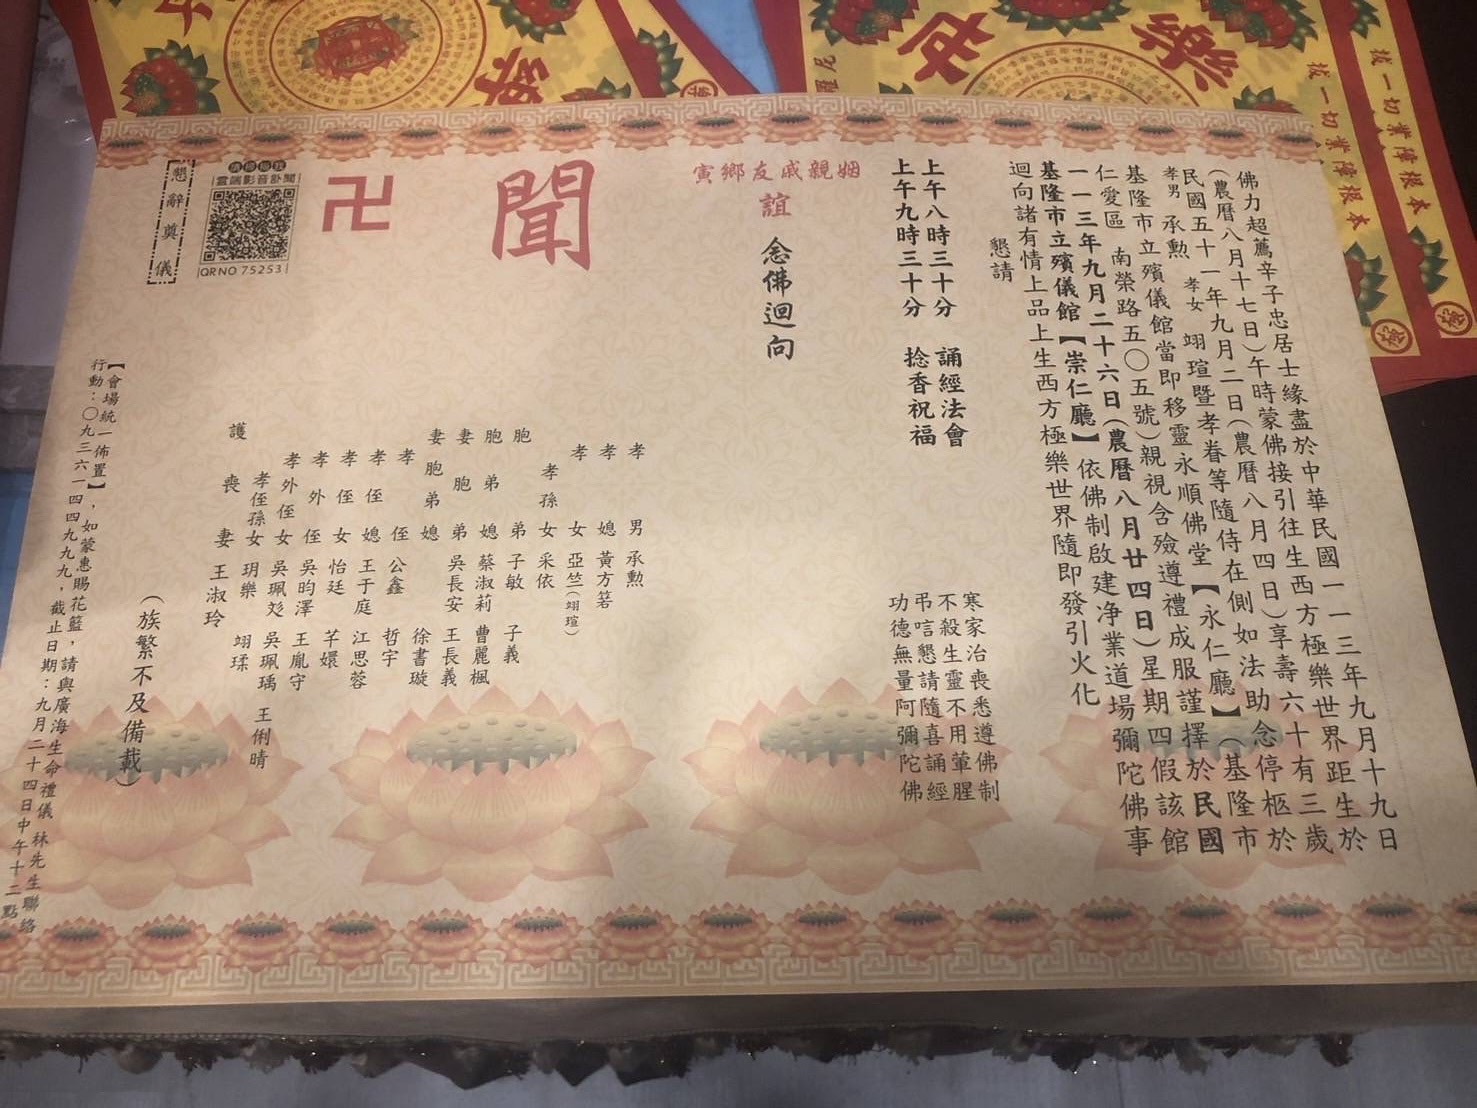 佛力超薦辛子忠居士緣盡於中華民國一一三年九月十九日
(農曆八月十七日)午時蒙佛接引往生西方極樂世界距生於
民國五十一年九月二日(農曆八月四日)享壽六十有三歲
孝男 承勲 孝女 翊瑄暨孝眷等隨侍在側如法助念停柩於
基隆市立殯儀館當即移靈永順佛堂【永仁廳】(基隆市
仁愛區 南榮路五〇五號)親視含殮遵禮成服謹擇於民國
一一三年九月二十六日(農曆八月廿四日)星期四假該館
基隆市立殯儀館【崇仁廳】依佛制啟建净業道場彌陀佛事
迴向諸有情上品上生西方極樂世界隨即發引火化
懇請
上午八時三十分 誦經法會
上午九時三十分 捻香祝福
寒家治喪悉遵佛制
不殺生靈不用葷腥
弔唁懇請隨喜誦經
功德無量阿彌陀佛
寅鄉友戚親姻
誼
念佛迴向
聞
卍
孝男 承勲
孝媳 黃方箬
孝女 亞竺(翊瑄)
孝孫女 采依
胞弟 子敏 子義
胞弟媳 蔡淑莉 曹麗楓
妻胞弟 吳長安 王長義
妻胞弟媳 徐書璇
孝侄 公鑫 哲宇
孝侄媳 王于庭 江思蓉
孝侄女 怡廷 芊嬛
孝外侄 吳昀澤 王胤守
孝外侄女 吳珮彣 吳珮瑀 王俐晴
孝侄孫女 玥樂 翊瑈
護喪妻 王淑玲
(族繁不及備載)
雲端影音訃聞
QRNO 75253
懇辭奠儀
【會場統一佈置】,如蒙惠賜花籃,請與廣海生命禮儀 林先生聯絡
行動:〇九三六一四四九九九,截止日期:九月二十四日中午十二點
世
樂
拔一切業障根本
拔一切業障根本